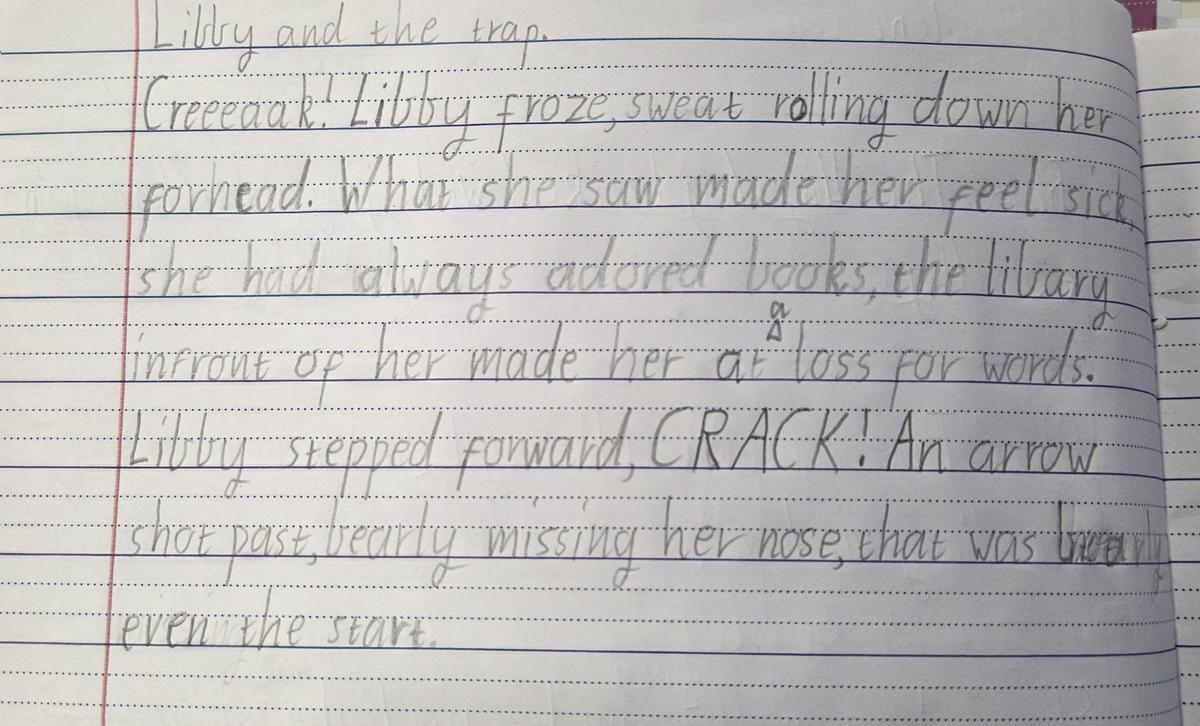 Libby and the trap.
Creeeaak! Libby froze, sweat rolling down her
forhead. What she saw made her feel sick,
she had always adored books, the libary
infront of her made her at a loss for words.
Libby stepped forward, CRACK! An arrow
shot past, bearly missing her nose, that was
even the start.